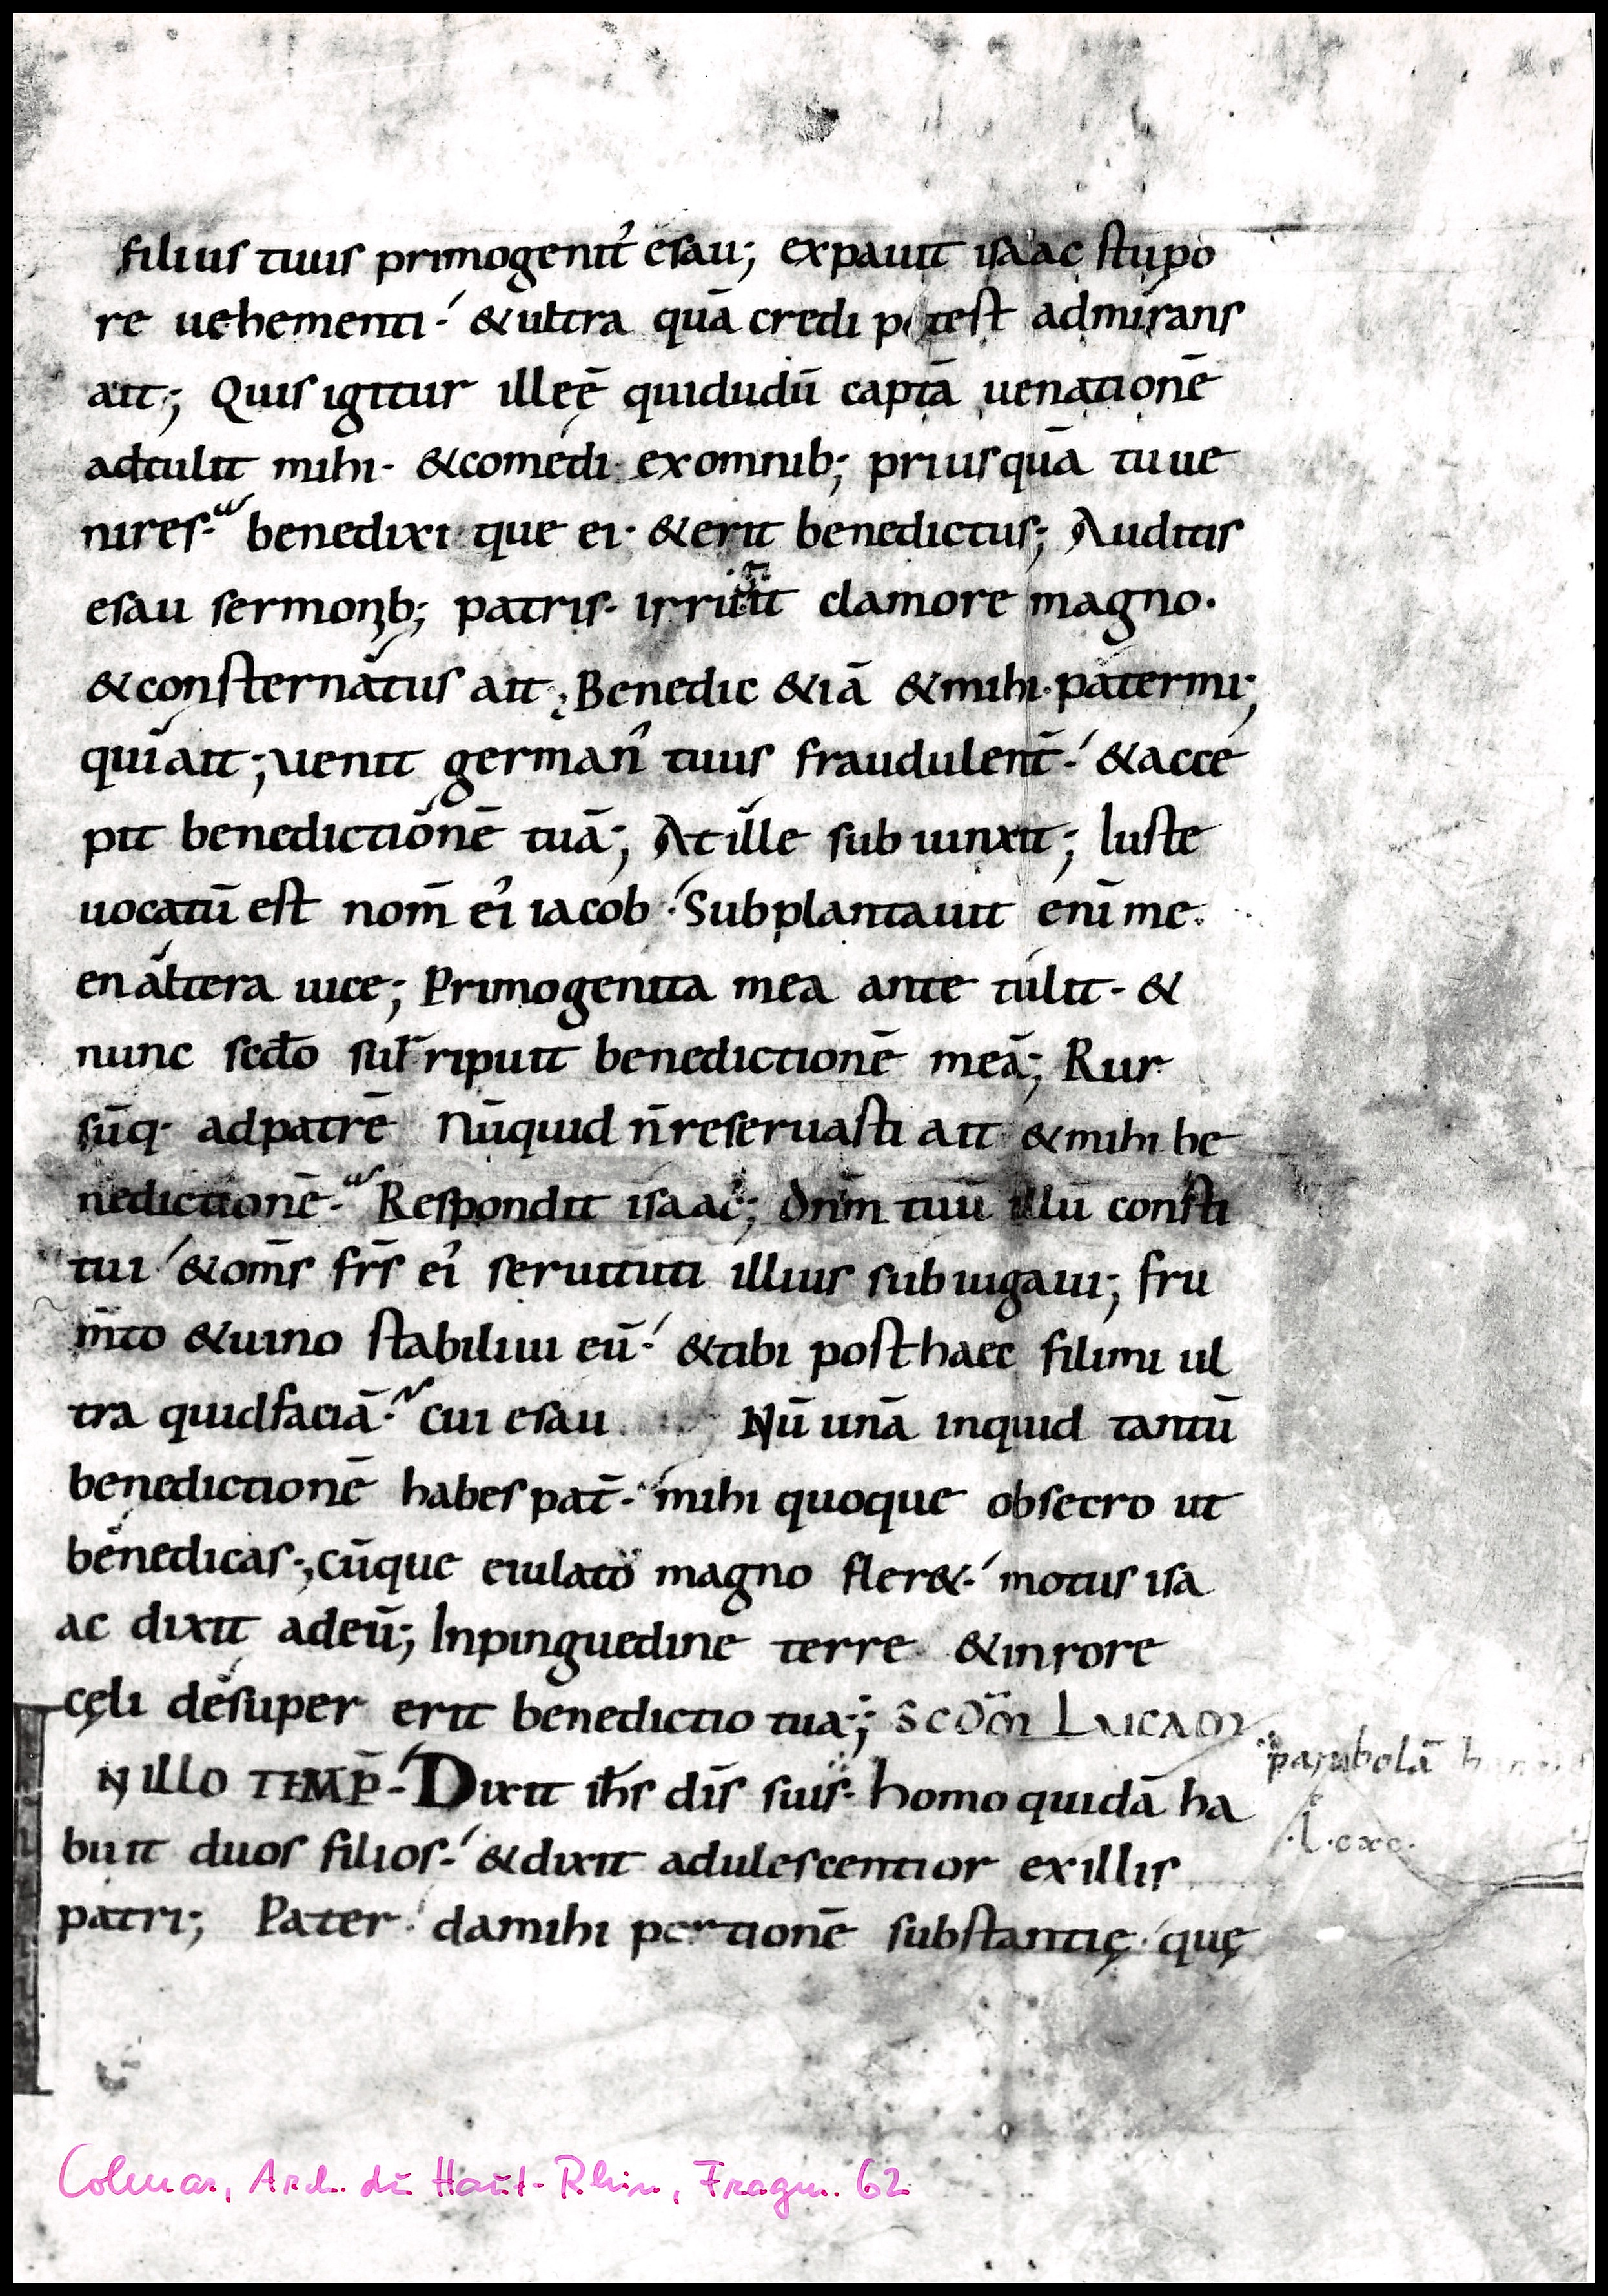 filius tuus primogenit᾿ esau; expauit isaac stupo
re uehementi·́ &ultra quā credi potest admirans
ait; Quis igitur ille ē quidudū captā uenationē
adtulit mihi· &comedi exomnib; priusquā tuue
nires· benedixi que ei· &erit benedictus; Auditis
esau sermonib; patris· irriit clamore magno·
&consternatus ait; Benedic &iā &mihi· patermi;
qui ait; uenit german᾿ tuus fraudulent̄·́ &acce
pit benedictionē tuā; At ille subiunxit; Iuste
uocatū est nom̄ ei᾿ iacob·́ Subplantauit enī me·
en altera uice; Primogenita mea ante tulit· &
nunc sc̄do surripuit benedictionē meā; Rur
sūq· adpatrē Nūquid n̄ reseruasti ait &mihi be
nedictionē· Respondit isaac; Dn̄m tuū illū consti
tui ́ &om̄s fr̄s ei᾿ seruituti illius subiugaui; fru
m̄to &uino stabiliui eū·́ &tibi posthaec filimi ul
tra quidfaciā· cui esau Nū unā inquid tantū
benedictionē habes pat̄· mihi quoque obsecro ut
benedicas; cūque eiulato magno fler&·́ motus isa
ac dixit adeū; Inpinguedine terre· &inrore
cęli desuper erit benedictio tua; SCD̄M LUCAM
parabolā
IN ILLO TEMP̄·́ Dixit ih̄s dis̄ suis· homo quidā ha
buit duos filios·́ &dixit adulescentior exillis
patri; Pater·́ damihi portionē substantię· quę
Colmar, Arch. du Haut-Rhin, Fragm. 62